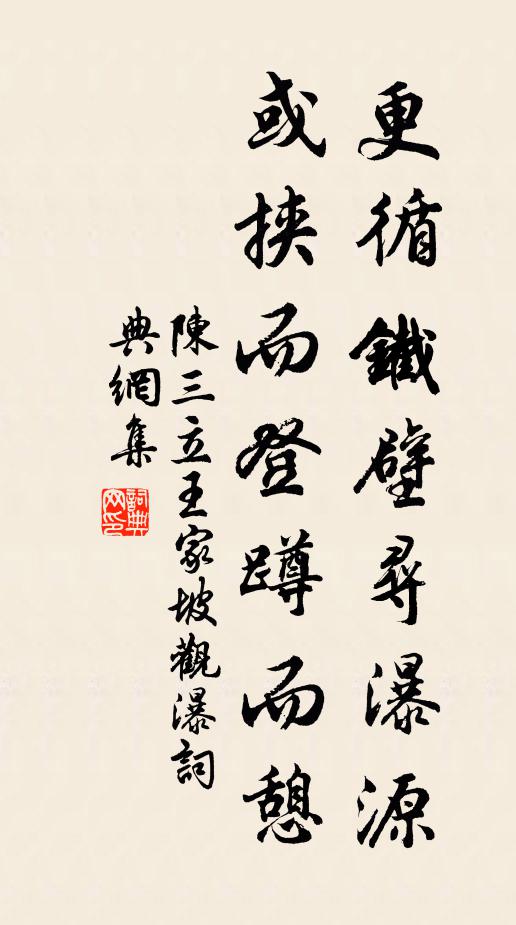 更循鐵壁尋瀑源
或挾而登蹲而憩
陳三立王家坡觀瀑詞
典網集
詞典网印